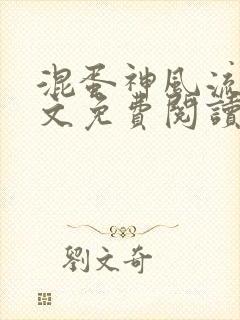 混蛋神風流
文免費閱讀
劉文奇